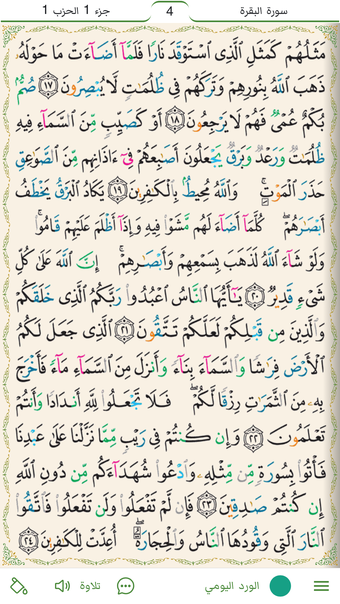 سورة البقرة
4
جزء 1 الحزب 1
مَثَلُهُمْ كَمَثَلِ ٱلَّذِى ٱسْتَوْقَدَ نَارًا فَلَمَّآ أَضَآءَتْ مَا حَوْلَهُۥ
ذَهَبَ ٱللَّهُ بِنُورِهِمْ وَتَرَكَهُمْ فِى ظُلُمَٰتٍ لَّا يُبْصِرُونَ ١٧ صُمٌّۢ
بُكْمٌ عُمْىٌ فَهُمْ لَا يَرْجِعُونَ ١٨ أَوْ كَصَيِّبٍ مِّنَ ٱلسَّمَآءِ فِيهِ
ظُلُمَٰتٌ وَرَعْدٌ وَبَرْقٌ يَجْعَلُونَ أَصَٰبِعَهُمْ فِىٓ ءَاذَانِهِم مِّنَ ٱلصَّوَٰعِقِ
حَذَرَ ٱلْمَوْتِ ۚ وَٱللَّهُ مُحِيطٌۢ بِٱلْكَٰفِرِينَ ١٩ يَكَادُ ٱلْبَرْقُ يَخْطَفُ
أَبْصَٰرَهُمْ ۖ كُلَّمَآ أَضَآءَ لَهُم مَّشَوْا۟ فِيهِ وَإِذَآ أَظْلَمَ عَلَيْهِمْ قَامُوا۟ ۚ
وَلَوْ شَآءَ ٱللَّهُ لَذَهَبَ بِسَمْعِهِمْ وَأَبْصَٰرِهِمْ ۚ إِنَّ ٱللَّهَ عَلَىٰ كُلِّ
شَىْءٍ قَدِيرٌ ٢٠ يَٰٓأَيُّهَا ٱلنَّاسُ ٱعْبُدُوا۟ رَبَّكُمُ ٱلَّذِى خَلَقَكُمْ
وَٱلَّذِينَ مِن قَبْلِكُمْ لَعَلَّكُمْ تَتَّقُونَ ٢١ ٱلَّذِى جَعَلَ لَكُمُ
ٱلْأَرْضَ فِرَٰشًا وَٱلسَّمَآءَ بِنَآءً وَأَنزَلَ مِنَ ٱلسَّمَآءِ مَآءً فَأَخْرَجَ
بِهِۦ مِنَ ٱلثَّمَرَٰتِ رِزْقًا لَّكُمْ ۖ فَلَا تَجْعَلُوا۟ لِلَّهِ أَندَادًا وَأَنتُمْ
تَعْلَمُونَ ٢٢ وَإِن كُنتُمْ فِى رَيْبٍ مِّمَّا نَزَّلْنَا عَلَىٰ عَبْدِنَا
فَأْتُوا۟ بِسُورَةٍ مِّن مِّثْلِهِۦ وَٱدْعُوا۟ شُهَدَآءَكُم مِّن دُونِ ٱللَّهِ
إِن كُنتُمْ صَٰدِقِينَ ٢٣ فَإِن لَّمْ تَفْعَلُوا۟ وَلَن تَفْعَلُوا۟ فَٱتَّقُوا۟
ٱلنَّارَ ٱلَّتِى وَقُودُهَا ٱلنَّاسُ وَٱلْحِجَارَةُ ۖ أُعِدَّتْ لِلْكَٰفِرِينَ ٢٤
الورد اليومي
تلاوة